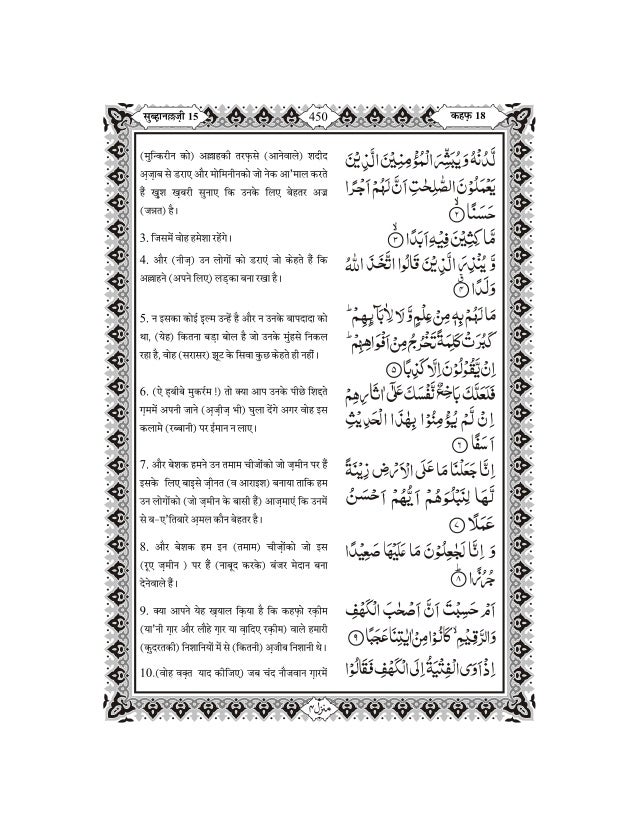 सुब्हानल्लज़ी 15
450
कहफ़ 18
(मुन्किरीन को) अल्लाहकी तरफ़से (आनेवाले) शदीद
अज़ाब से डराए और मोमिनीनको जो नेक आ'माल करते
हैं खुश ख़बरी सुनाए कि उनके लिए बेहतर अज्र
(जन्नत) है।
3. जिसमें वोह हमेशा रहेंगे।
4. और (नीज़) उन लोगों को डराएं जो कहते हैं कि
अल्लाहने (अपने लिए) लड़का बना रखा है।
5. न इसका कोई इल्म उन्हें है और न उनके बापदादा को
था, (येह) कितना बड़ा बोल है जो उनके मुंहसे निकल
रहा है, वोह (सरासर) झूट के सिवा कुछ कहते ही नहीं।
6. (ऐ हबीबे मुकर्रम !) तो क्या आप उनके पीछे शिद्दते
ग़ममें अपनी जाने (अज़ीज़ भी) घुला देंगे अगर वोह इस
कलामे (रब्बानी) पर ईमान न लाए।
7. और बेशक हमने उन तमाम चीजोंको जो ज़मीन पर हैं
इसके लिए बाइसे ज़ीनत (व आराइश) बनाया ताकि हम
उन लोगोंको (जो ज़मीन के बासी हैं) आज़माएं कि उनमें
से ब-ए'तिबारे अ़मल कौन बेहतर है।
8. और बेशक हम इन (तमाम) चीज़ोंको जो इस
(रूए ज़मीन ) पर हैं (नाबूद करके) बंजर मेदान बना
देनेवाले हैं।
9. क्या आपने येह ख़याल किया है कि कहफ़ो रक़ीम
(या'नी ग़ार और लौहे ग़ार या वादिए रक़ीम) वाले हमारी
(क़ुदरतकी) निशानियों में से (कितनी) अ़जीब निशानी थे।
10.(वोह वक़्त याद कीजिए) जब चंद नौजवान ग़ारमें
لَّدُنْهُ وَيُبَشِّرَ الْمُؤْمِنِيْنَ الَّذِيْنَ
يَعْمَلُوْنَ الصّٰلِحٰتِ اَنَّ لَهُمْ اَجْرًا
حَسَنًا ۙ‏﴿۲﴾
مَّاكِثِيْنَ فِيْهِ اَبَدًا ۙ‏﴿۳﴾
وَّيُنْذِرَ الَّذِيْنَ قَالُوا اتَّخَذَ اللّٰهُ
وَلَدًا ۗ‏﴿۴﴾
مَا لَهُمْ بِهٖ مِنْ عِلْمٍ وَّلَا لِاٰبَآئِهِمْ ؕ
كَبُرَتْ كَلِمَةً تَخْرُجُ مِنْ اَفْوَاهِهِمْ ؕ
اِنْ يَّقُوْلُوْنَ اِلَّا كَذِبًا ﴿۵﴾
فَلَعَلَّكَ بَاخِعٌ نَّفْسَكَ عَلٰٓى اٰثَارِهِمْ
اِنْ لَّمْ يُؤْمِنُوْا بِهٰذَا الْحَدِيْثِ
اَسَفًا ﴿۶﴾
اِنَّا جَعَلْنَا مَا عَلَى الْاَرْضِ زِيْنَةً
لَّهَا لِنَبْلُوَهُمْ اَيُّهُمْ اَحْسَنُ
عَمَلًا ﴿۷﴾
وَ اِنَّا لَجٰعِلُوْنَ مَا عَلَيْهَا صَعِيْدًا
جُرُزًا ؕ‏﴿۸﴾
اَمْ حَسِبْتَ اَنَّ اَصْحٰبَ الْكَهْفِ
وَالرَّقِيْمِ ۙ كَانُوْا مِنْ اٰيٰتِنَا عَجَبًا ﴿۹﴾
اِذْ اَوَى الْفِتْيَةُ اِلَى الْكَهْفِ فَقَالُوْا
منزل ۴